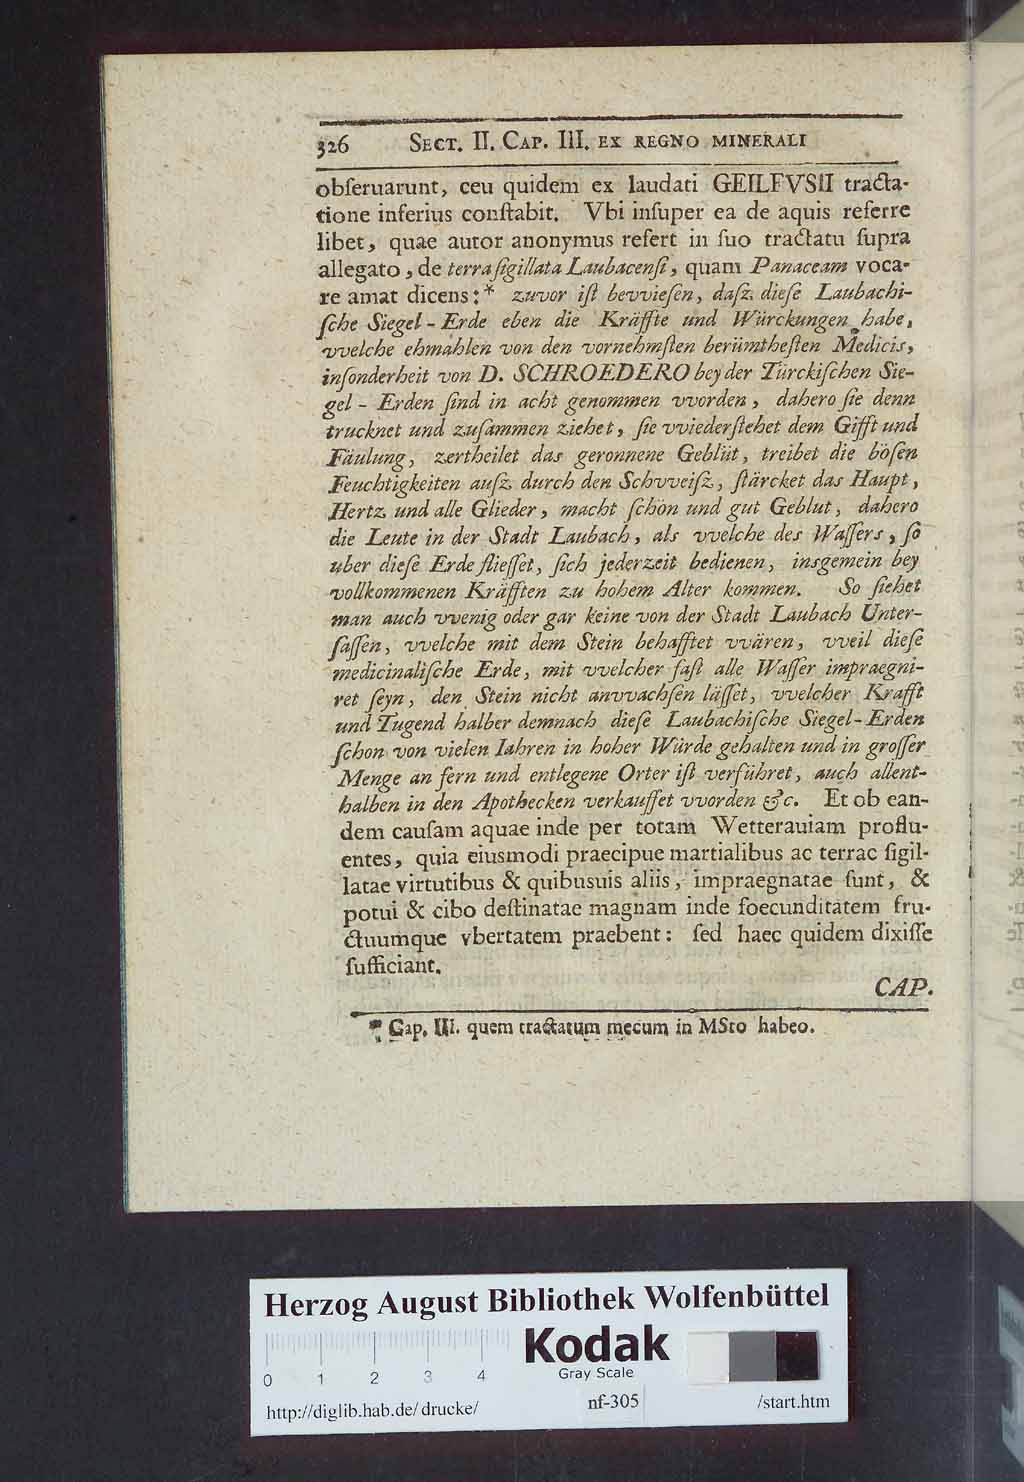 326 SECT. II. CAP. III. EX REGNO MINERALI
obſeruarunt, ceu quidem ex laudati GEILFVSII tracta-
tione inferius conſtabit. Vbi inſuper ea de aquis referre
libet, quae autor anonymus refert in ſuo tractatu ſupra
allegato, de terra ſigillata Laubacenſi, quam Panaceam voca-
re amat dicens:* zuvor iſt bevvieſen, daſz dieſe Laubachi-
ſche Siegel-Erde eben die Kräffte und Würckungen habe,
vvelche ehmahlen von den vornehmſten berümtheſten Medicis,
inſonderheit von D. SCHROEDERO bey der Türckiſchen Sie-
gel-Erden ſind in acht genommen vvorden, dahero ſie denn
trucknet und zuſammen ziehet, ſie vviederſtehet dem Gifft und
Fäulung, zertheilet das geronnene Geblüt, treibet die böſen
Feuchtigkeiten auſz durch den Schvveiſz, ſtärcket das Haupt,
Hertz und alle Glieder, macht ſchön und gut Geblut, dahero
die Leute in der Stadt Laubach, als vvelche des Waſſers, ſo
uber dieſe Erde flieſſet, ſich jederzeit bedienen, insgemein bey
vollkommenen Kräfften zu hohem Alter kommen. So ſiehet
man auch vvenig oder gar keine von der Stadt Laubach Unter-
ſaſſen, vvelche mit dem Stein behafftet vvären, vveil dieſe
medicinaliſche Erde, mit vvelcher faſt alle Waſſer impraegni-
ret ſeyn, den Stein nicht anvvachſen läſſet, vvelcher Krafft
und Tugend halber demnach dieſe Laubachiſche Siegel-Erden
ſchon von vielen Iahren in hoher Würde gehalten und in groſſer
Menge an fern und entlegene Orter iſt verführet, auch allent-
halben in den Apothecken verkauffet vvorden &c. Et ob ean-
dem cauſam aquae inde per totam Wetterauiam proflu-
entes, quia eiusmodi praecipue martialibus ac terrae ſigil-
latae virtutibus & quibusuis aliis, impraegnatae ſunt, &
potui & cibo deſtinatae magnam inde foecunditatem fru-
ctuumque vbertatem praebent: ſed haec quidem dixiſſe
ſufficiant.
CAP.
* Cap. III. quem tractatum mecum in MSto habeo.
Herzog August Bibliothek Wolfenbüttel
Kodak
Gray Scale
0 1 2 3 4
http://diglib.hab.de/drucke/ nf-305 /start.htm